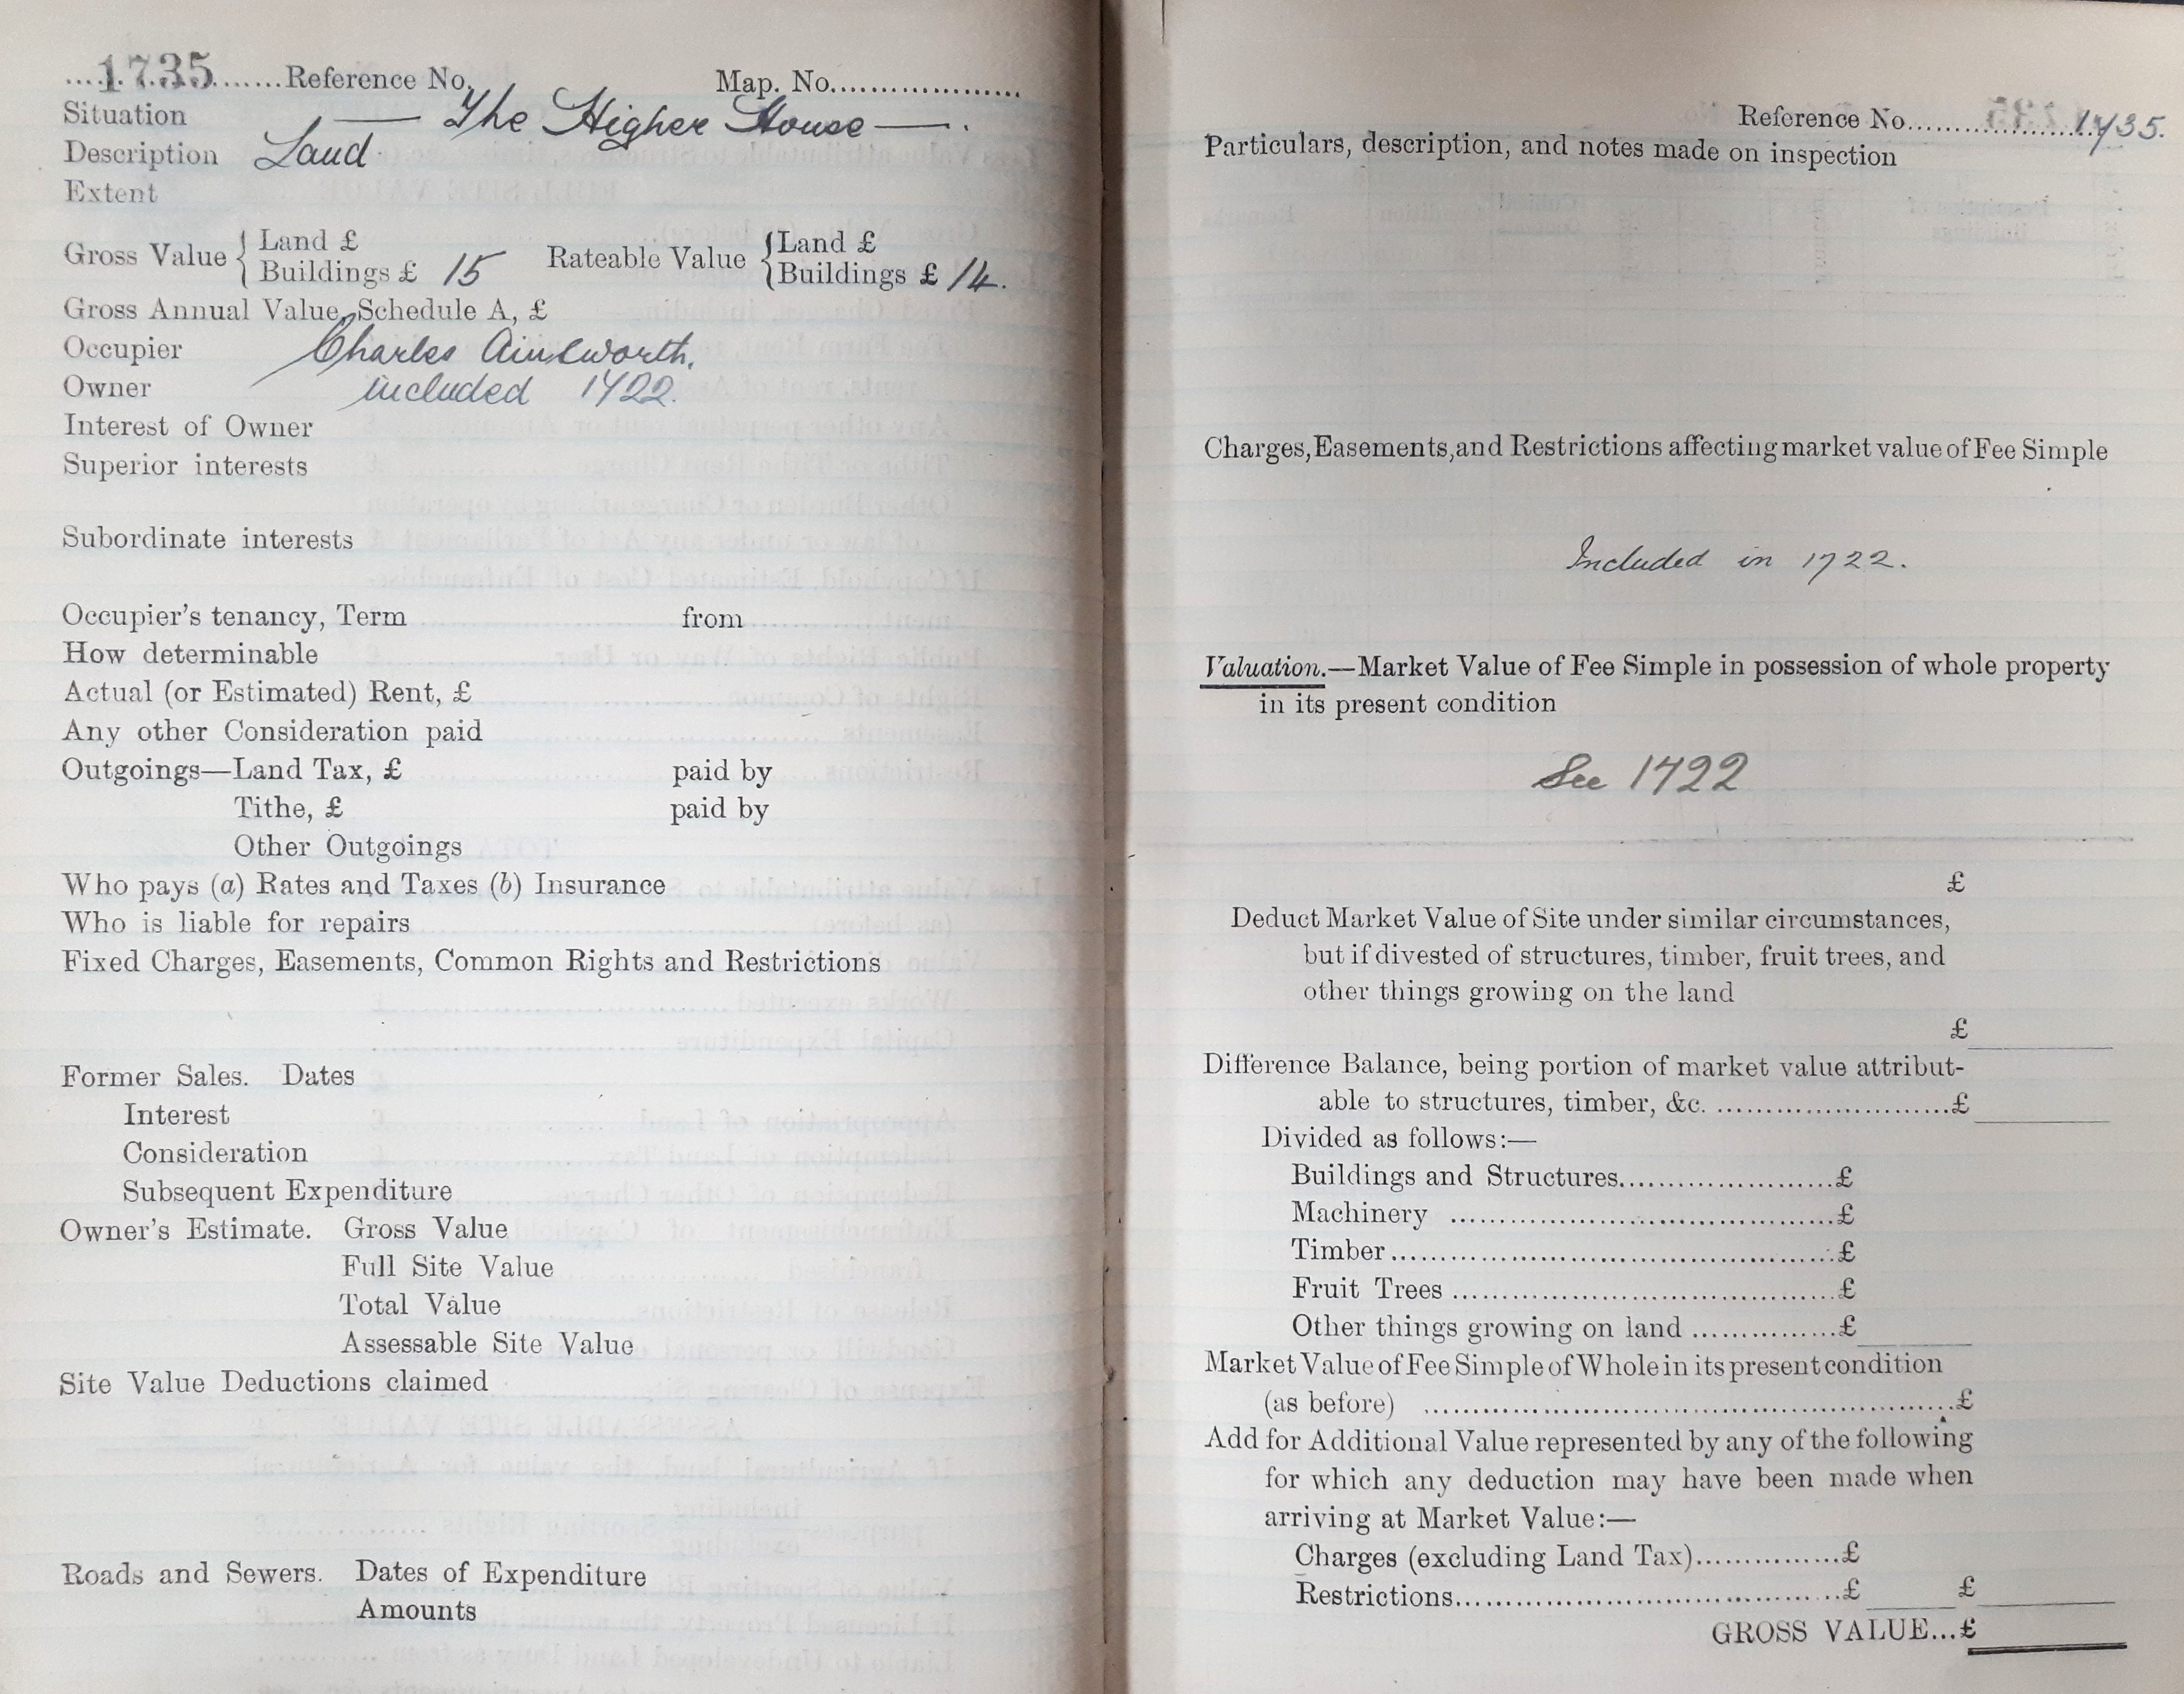 ....1735.......Reference No.
Map. No....................
Situation — The Higher House —.
Description Land
Extent
Gross Value { Land £
Buildings £ 15
Rateable Value { Land £
Buildings £ 14.
Gross Annual Value, Schedule A, £
Occupier Charles Ainsworth.
Owner included 1722.
Interest of Owner
Superior interests
Subordinate interests
Occupier's tenancy, Term from
How determinable
Actual (or Estimated) Rent, £
Any other Consideration paid
Outgoings—Land Tax, £ paid by
Tithe, £ paid by
Other Outgoings
Who pays (a) Rates and Taxes (b) Insurance
Who is liable for repairs
Fixed Charges, Easements, Common Rights and Restrictions
Former Sales. Dates
Interest
Consideration
Subsequent Expenditure
Owner's Estimate. Gross Value
Full Site Value
Total Value
Assessable Site Value
Site Value Deductions claimed
Roads and Sewers. Dates of Expenditure
Amounts
Reference No....................1735.
Particulars, description, and notes made on inspection
Charges, Easements, and Restrictions affecting market value of Fee Simple
Included in 1722.
Valuation.—Market Value of Fee Simple in possession of whole property
in its present condition
See 1722
£
Deduct Market Value of Site under similar circumstances,
but if divested of structures, timber, fruit trees, and
other things growing on the land
£
Difference Balance, being portion of market value attribut-
able to structures, timber, &c. .........................£
Divided as follows:—
Buildings and Structures.......................£
Machinery .........................................£
Timber..............................................£
Fruit Trees .........................................£
Other things growing on land ................£
Market Value of Fee Simple of Whole in its present condition
(as before) .........................................................£
Add for Additional Value represented by any of the following
for which any deduction may have been made when
arriving at Market Value:—
Charges (excluding Land Tax)................£
Restrictions...........................................£ £
GROSS VALUE...£